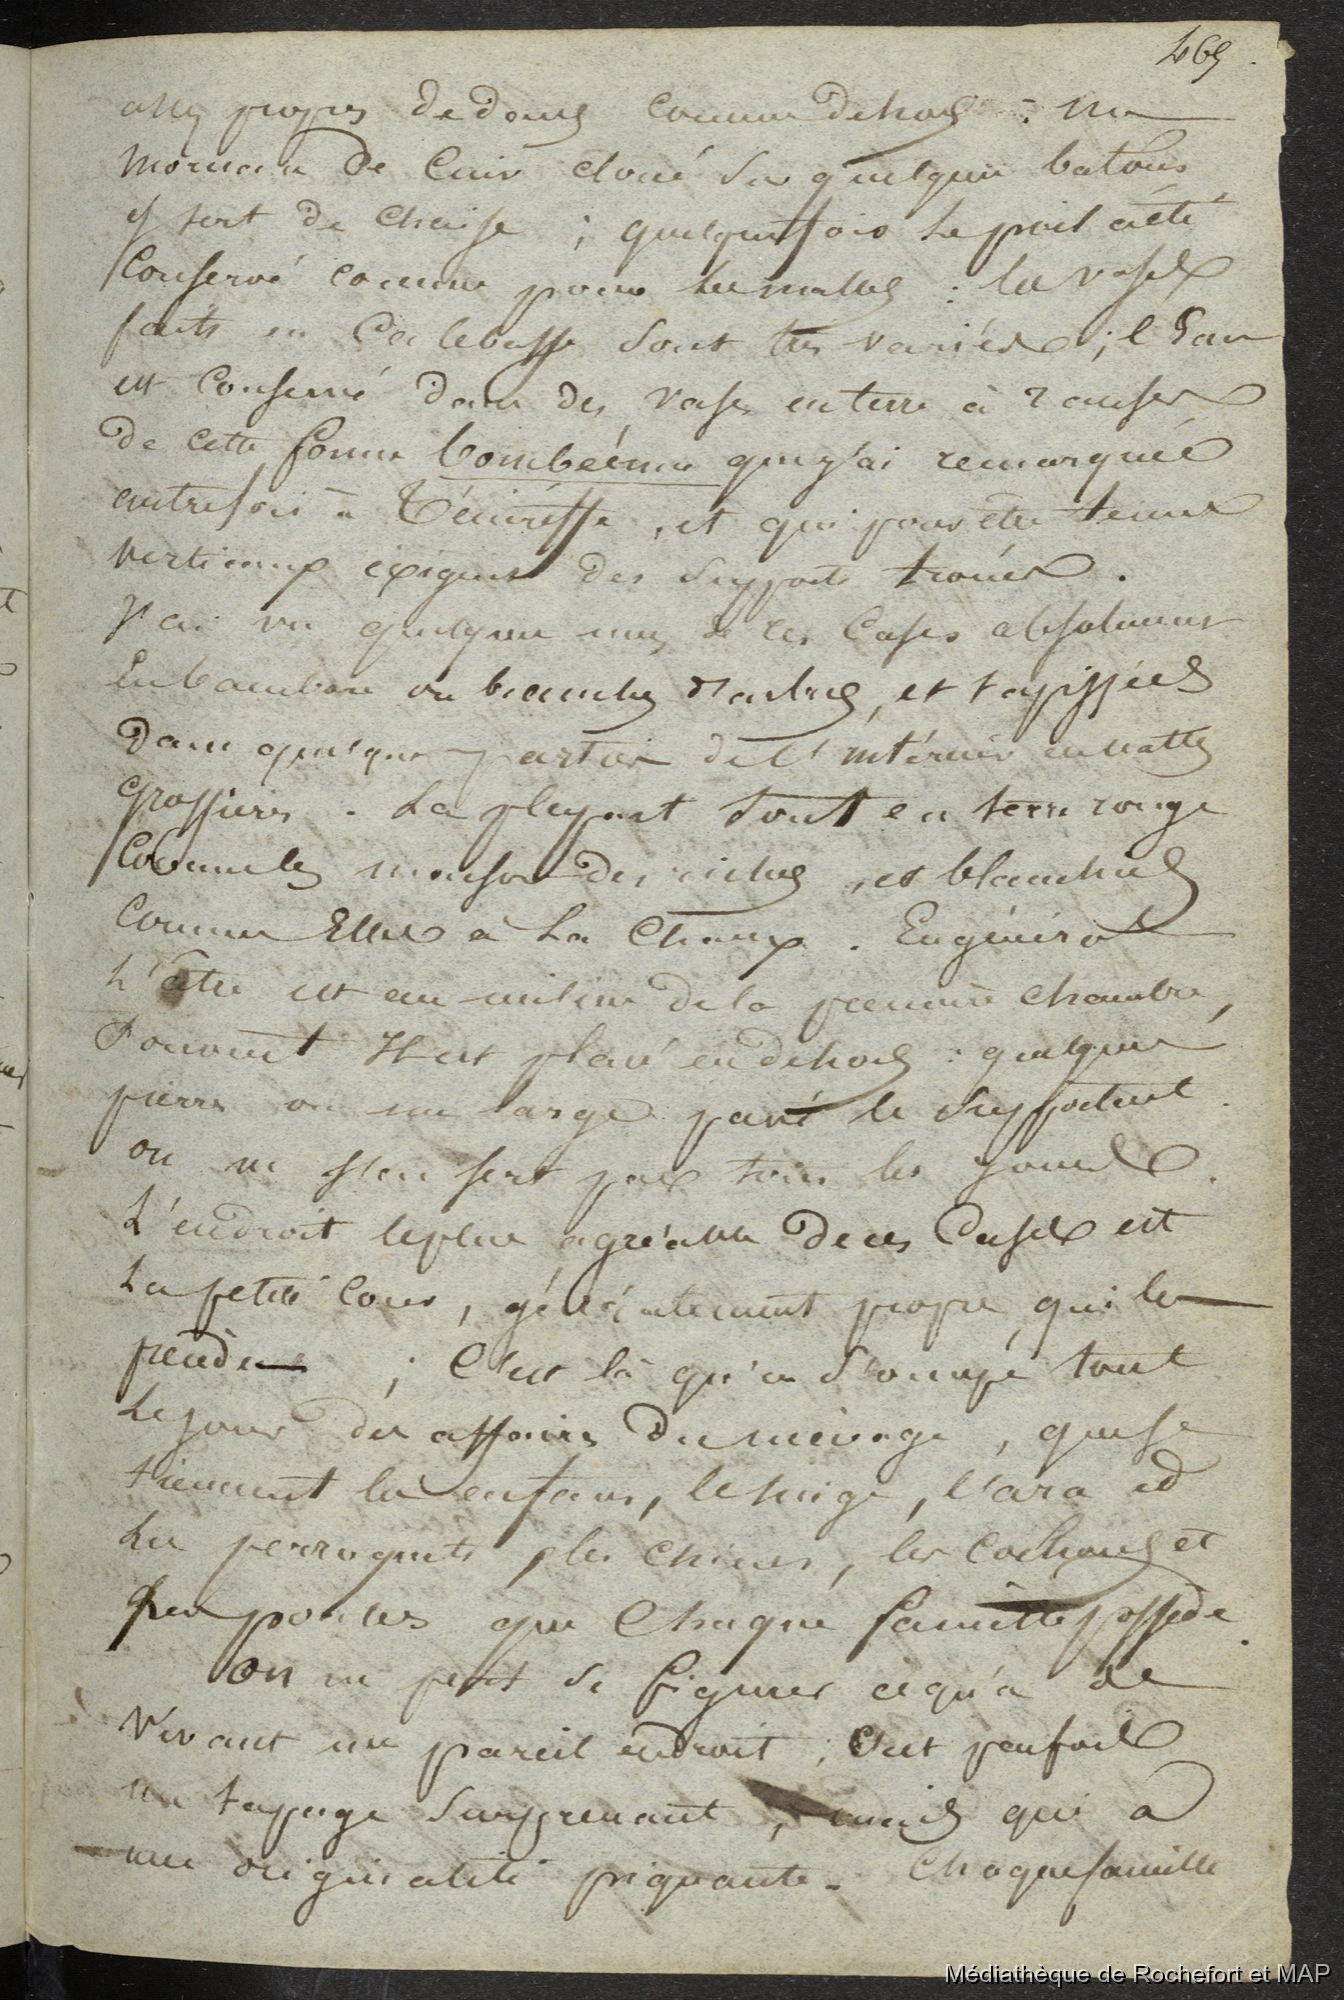 469.
assez propres dedans comme dehors : un
morceau de cuir cloué sur quelques batons
y sert de chaise ; quelquefois le poil a été
conservé comme pour les malles : les vases
faits en Calebasse sont très variés ; l'Eau
est conservé dans des vases en terre à
de cette forme bombée que j'ai remarquée
autrefois à Ténériffe, et qui pour être tenus
verticaux exigent des supports troués.
J'ai vu quelques unes de ces Cases absolument
En bambou ou branches d'arbres, et tapissées
dans quelques parties de l'intérieur en nattes
grossières. La plupart sont en terre rouge
Comme les maisons des riches, et blanchies
comme Elles à la Chaux. En général
L'âtre est au milieu de la première chambre,
souvent Il est placé en dehors : quelques
pierres ou un large pavé le supportent.
on ne s'en sert pas tous les jours.
L'endroit le plus agréable de ces Cases est
La petite cour, généralement propre, qui les
précède ; C'est là qu'on s'occupe tout
Le jour des affaires du ménage, que se
tiennent les enfans, le singe, l'ara et
Les perroquets, les chiens, les Cochons et
les poules que Chaque famille possède.
On ne peut se figurer ce qu'a de
Vivant un pareil endroit ; C'est parfois
un tapage surprenant, mais qui a
une originalité piquante. Chaque famille
Médiathèque de Rochefort et MAP